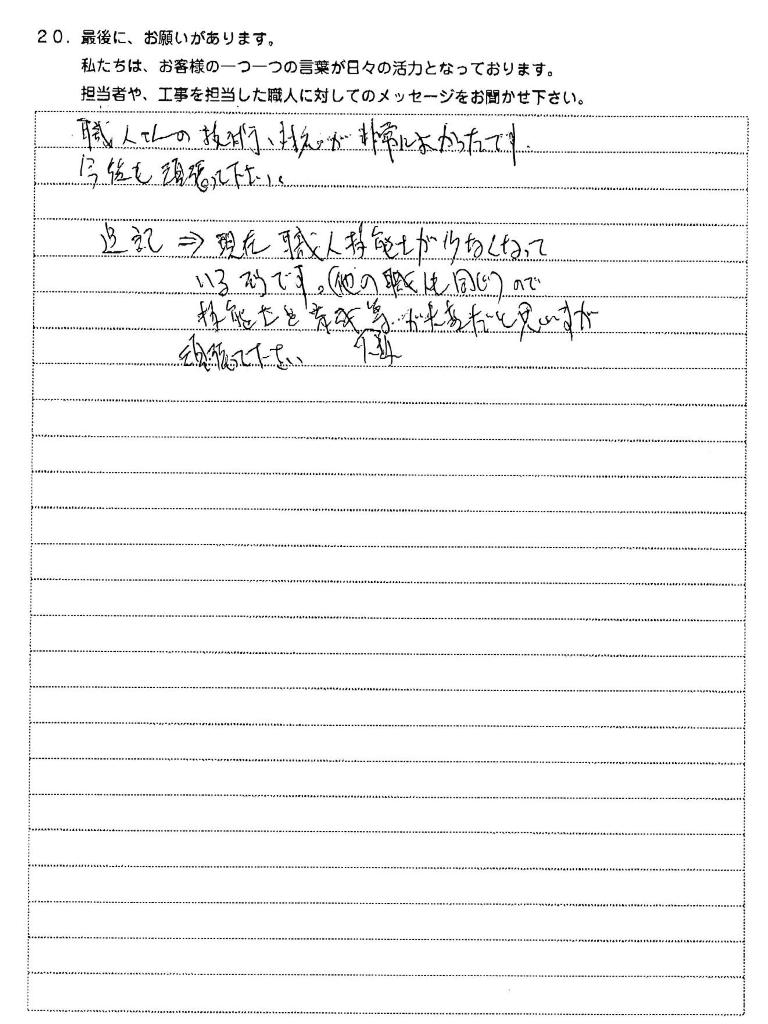 20. 最後に、お願いがあります。
私たちは、お客様の一つ一つの言葉が日々の活力となっております。
担当者や、工事を担当した職人に対してのメッセージをお聞かせ下さい。
職人さんの技術、対応が非常によかったです.
今後も頑張って下さい。
追記 ⇒ 現在 職人技能士が少なくなって
いる です。(他の職も同じ)ので
技能士を育成等 が大変だと思いますが
頑張って下さい